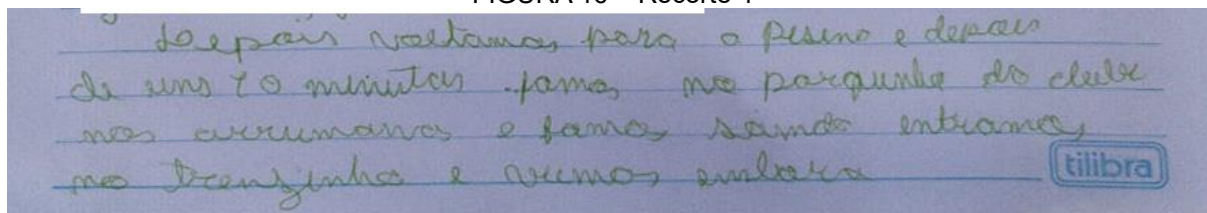 FIGURA 10 – Recorte 4
Depois voltamos para o pisino e depois
de uns 10 minutos fomos no parquinho do clube
nos arrumamos e fomos saindo entramos
no trenzinho e viemos embora
tilibra